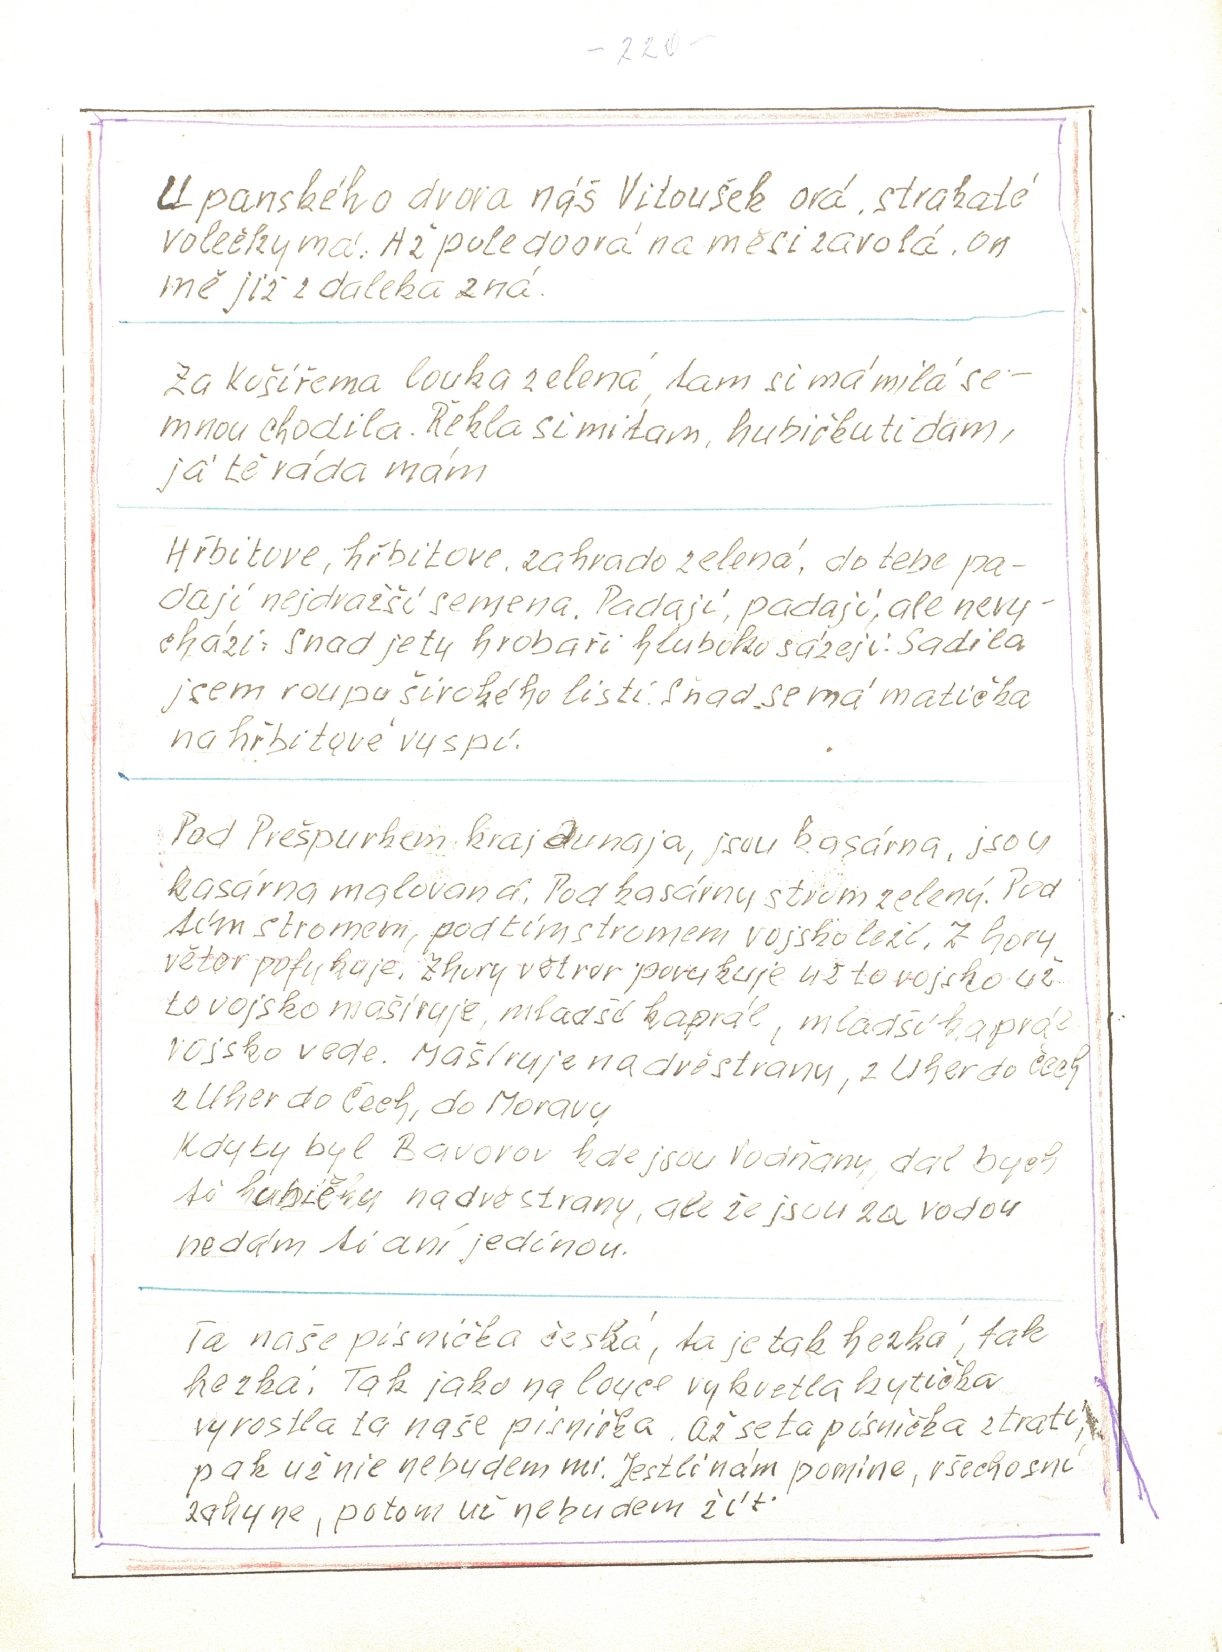 - 220 -
U panského dvora náš Vitoušek orá, strakaté
volečky má. Až pole doorá na mě si zavolá. On
mě již z daleka zná.
Za Košířema louka zelená, tam si má milá se-
mnou chodila. Řekla si mi tam, hubičku ti dam,
já tě ráda mám
Hřbitove, hřbitove, zahrado zelená, do tebe pa-
dají nejdražší semena. Padají, padají, ale nevy-
chází: Snad je ty hrobaři hluboko sázejí: Sadila
jsem roupu širokého listí. Snad se má matička
na hřbitově vyspí.
Pod Prešpurkem kraj Dunaja, jsou kasárna, jsou
kasárna malovaná. Pod kasárny strom zelený. Pod
tím stromem, pod tím stromem vojsko leží. Z hory
větor pofukuje. Z hory větror povukuje už to vojsko už
to vojsko mašíruje, mladší kaprál, mladší kaprál
vojsko vede. Mašíruje na dvě strany, z Uher do Čech
z Uher do Čech, do Moravy
Kdyty byl Bavorov kde jsou Vodňany, dal bych
ti hubičku na dvě strany, ale že jsou za vodou
nedám ti aní jedinou.
Ta naše písnička česká, ta je tak hezká, tak
hezká. Tak jako na louce vykvetla kytička
vyrostla ta naše písnička. Až se ta písnička ztratí,
pak už nic nebudem mi. Jestli nám pomine, všechosní
zahyne, potom už nebudem žít.